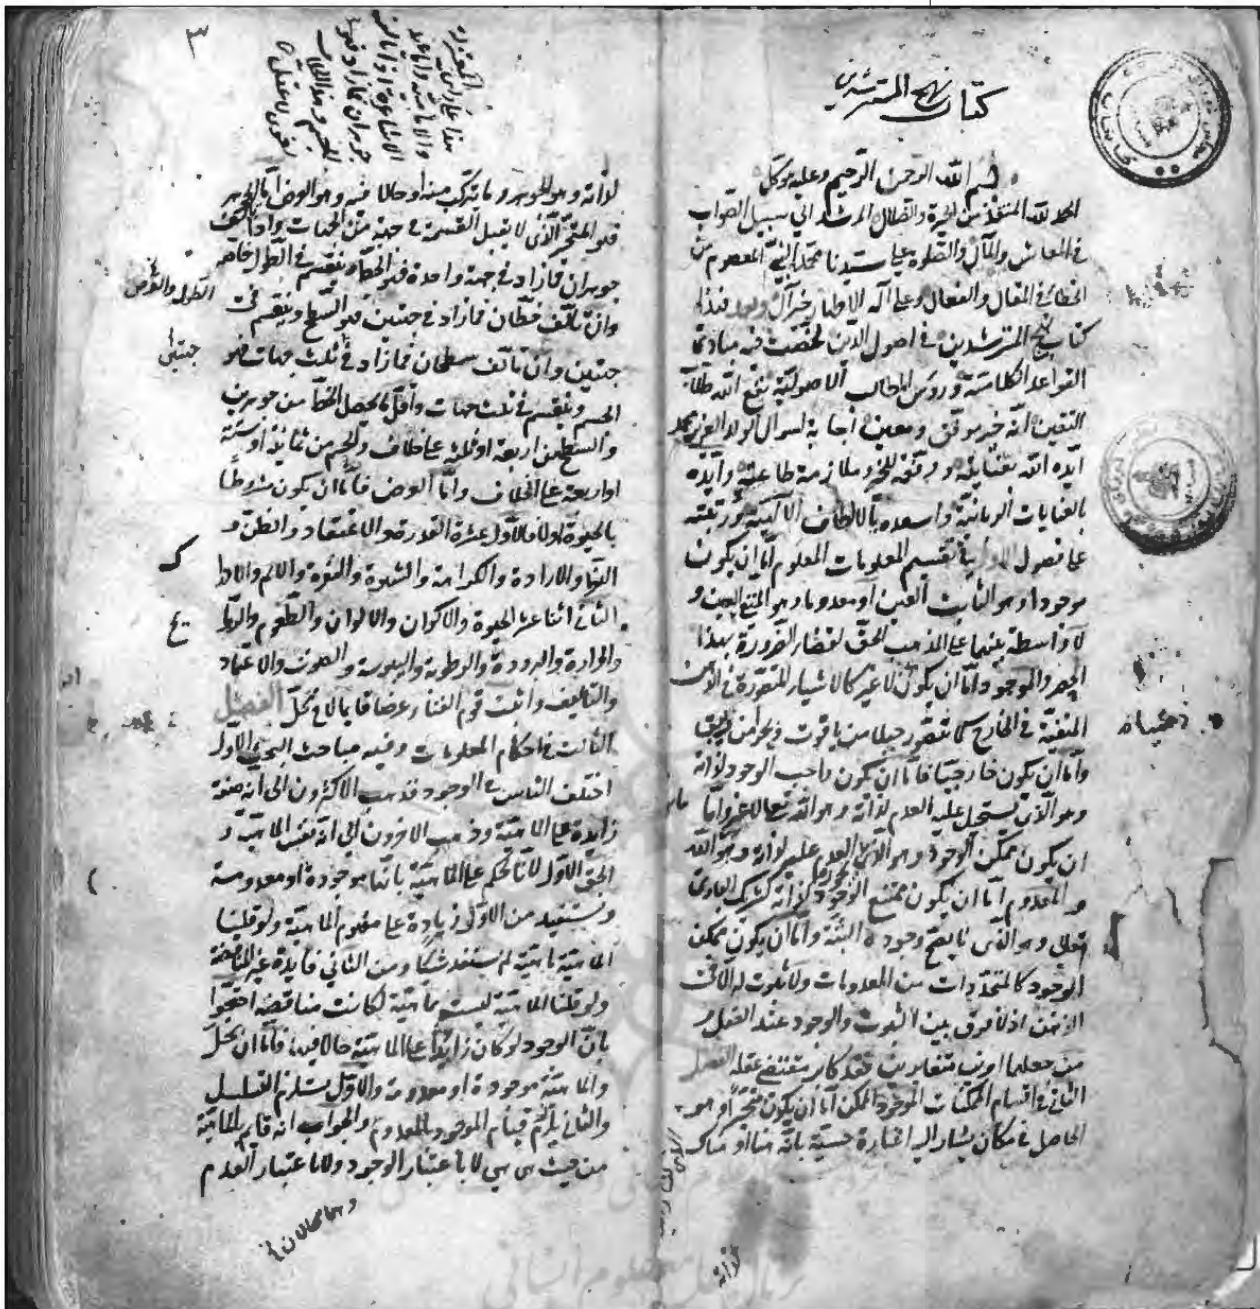 كتاب نهج المسترشدين
بسم الله الرحمن الرحيم وعليه توكلي
الحمد لله المنقذ من الحيرة والضلال المرشد الى سبيل الصواب
في المعاش والمآل والصلوة على سيدنا محمد النبي المعصوم من
الخطا في المقال والفعال وعلى آله الاطهار خير آل وبعد فهذا
كتاب نهج المسترشدين في اصول الدين لخصت فيه مبادئ
القواعد الكلامية ورؤس المطالب الاصولية نفع الله طلاب
اليقين انه خير موفق ومعين اجابة لسوال الولد العزيز محمد
ايده الله بعنايته ووفقه للخير وملازمة طاعته وايده
بالعنايات الربانية واسعده بالالطاف الالهية ورتبته
على فصول الاول في تقسيم المعلومات المعلوم اما ان يكون
موجودا وهو الثابت العين او معدوما وهو المنفي العين و
لا واسطة بينهما على المذهب الحق لقضاء الضرورة بهذا
الحصر والموجود اما ان يكون ذهنيا لا غير كالاشياء المتصورة في الذهن
المنفية في الخارج كما نتصور جبلا من ياقوت وبحرا من زيبق
واما ان يكون خارجيا فاما ان يكون واجب الوجود لذاته
وهو الذي يستحيل عليه العدم لذاته وهو الله تعالى لا غير واما
ان يكون ممكن الوجود وهو الذي العدم عليه لذاته وهو ما عداه
والمعدوم اما ان يكون ممتنع الوجود لذاته كشريك الباري
تعالى وهو الذي لا يصح وجوده البتة واما ان يكون ممكن
الوجود كالمتجددات من المعدومات ولا ثبوت له الا في
الذهن اذ لا فرق بين الثبوت والوجود عند العقل و
من جعلهما امرين متغايرين فقد كابر مقتضى عقله الفصل
الثاني في اقسام الممكنات الموجود الممكن اما ان يكون متحيزا وهو
الحاصل في مكان يشار اليه اشارة حسية بانه هنا او هناك
لذاته
٣
لذاته وهو الجوهر وما تركب منه او حالا فيه وهو العرض اما الجوهر
فهو المتحيز الذي لا يقبل القسمة في جهة من الجهات واذا تألف
جوهران فما زاد في جهة واحدة فهو الخط وينقسم في الطول خاصة
وان تألف خطان فما زاد في جهتين فهو السطح وينقسم في
الطول والعرض
جهتين وان تألف سطحان فما زاد في ثلث جهات فهو
الجسم وينقسم في ثلث جهات واقل ما يحصل الخط من جوهرين
والسطح من اربعة او ثلثة على خلاف والجسم من ثمانية او ستة
او اربعة على الخلاف واما العرض فاما ان يكون مشروطا
بالحيوة او لا فالاول عشرة القدرة والاعتقاد والظن و
النظر والارادة والكراهة والشهوة والنفرة والالم والادراك
الثاني اثنا عشر الحيوة والاكوان والالوان والطعوم والروائح
والحرارة والبرودة والرطوبة واليبوسة والصوت والاعتماد
والتاليف واثبت قوم الفناء عرضا قايما لا في محل الفصل
الثالث في احكام المعلومات وفيه مباحث البحث الاول
اختلف الناس في الوجود فذهب الاكثرون الى انه صفة
زايدة على الماهية وذهب الاخرون الى انه نفس الماهية و
الحق الاول لانا نحكم على الماهية بانها موجودة او معدومة
ونستفيد من الاول زيادة على مفهوم الماهية ولو قلنا
الماهية ماهية لم نستفد شيئا ومن الثاني فايدة غير المناقضة
ولو قلنا الماهية ليست بماهية لكانت مناقضة احتجوا
بان الوجود لو كان زايدا على الماهية حالا فيها فاما ان يحل
والماهية موجودة او معدومة والاول يستلزم التسلسل
والثاني يلزم قيام الموجود بالمعدوم والجواب انه قايم بالماهية
وهما محالان
من حيث هي هي لا باعتبار الوجود ولا باعتبار العدم